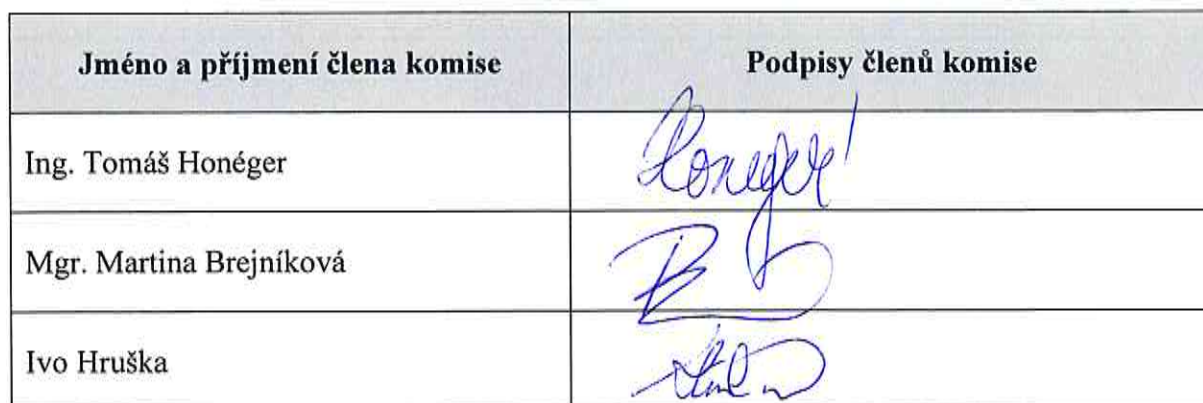 Jméno a příjmení člena komise Podpisy členů komise
Ing. Tomáš Honéger Honéger
Mgr. Martina Brejníková
Ivo Hruška